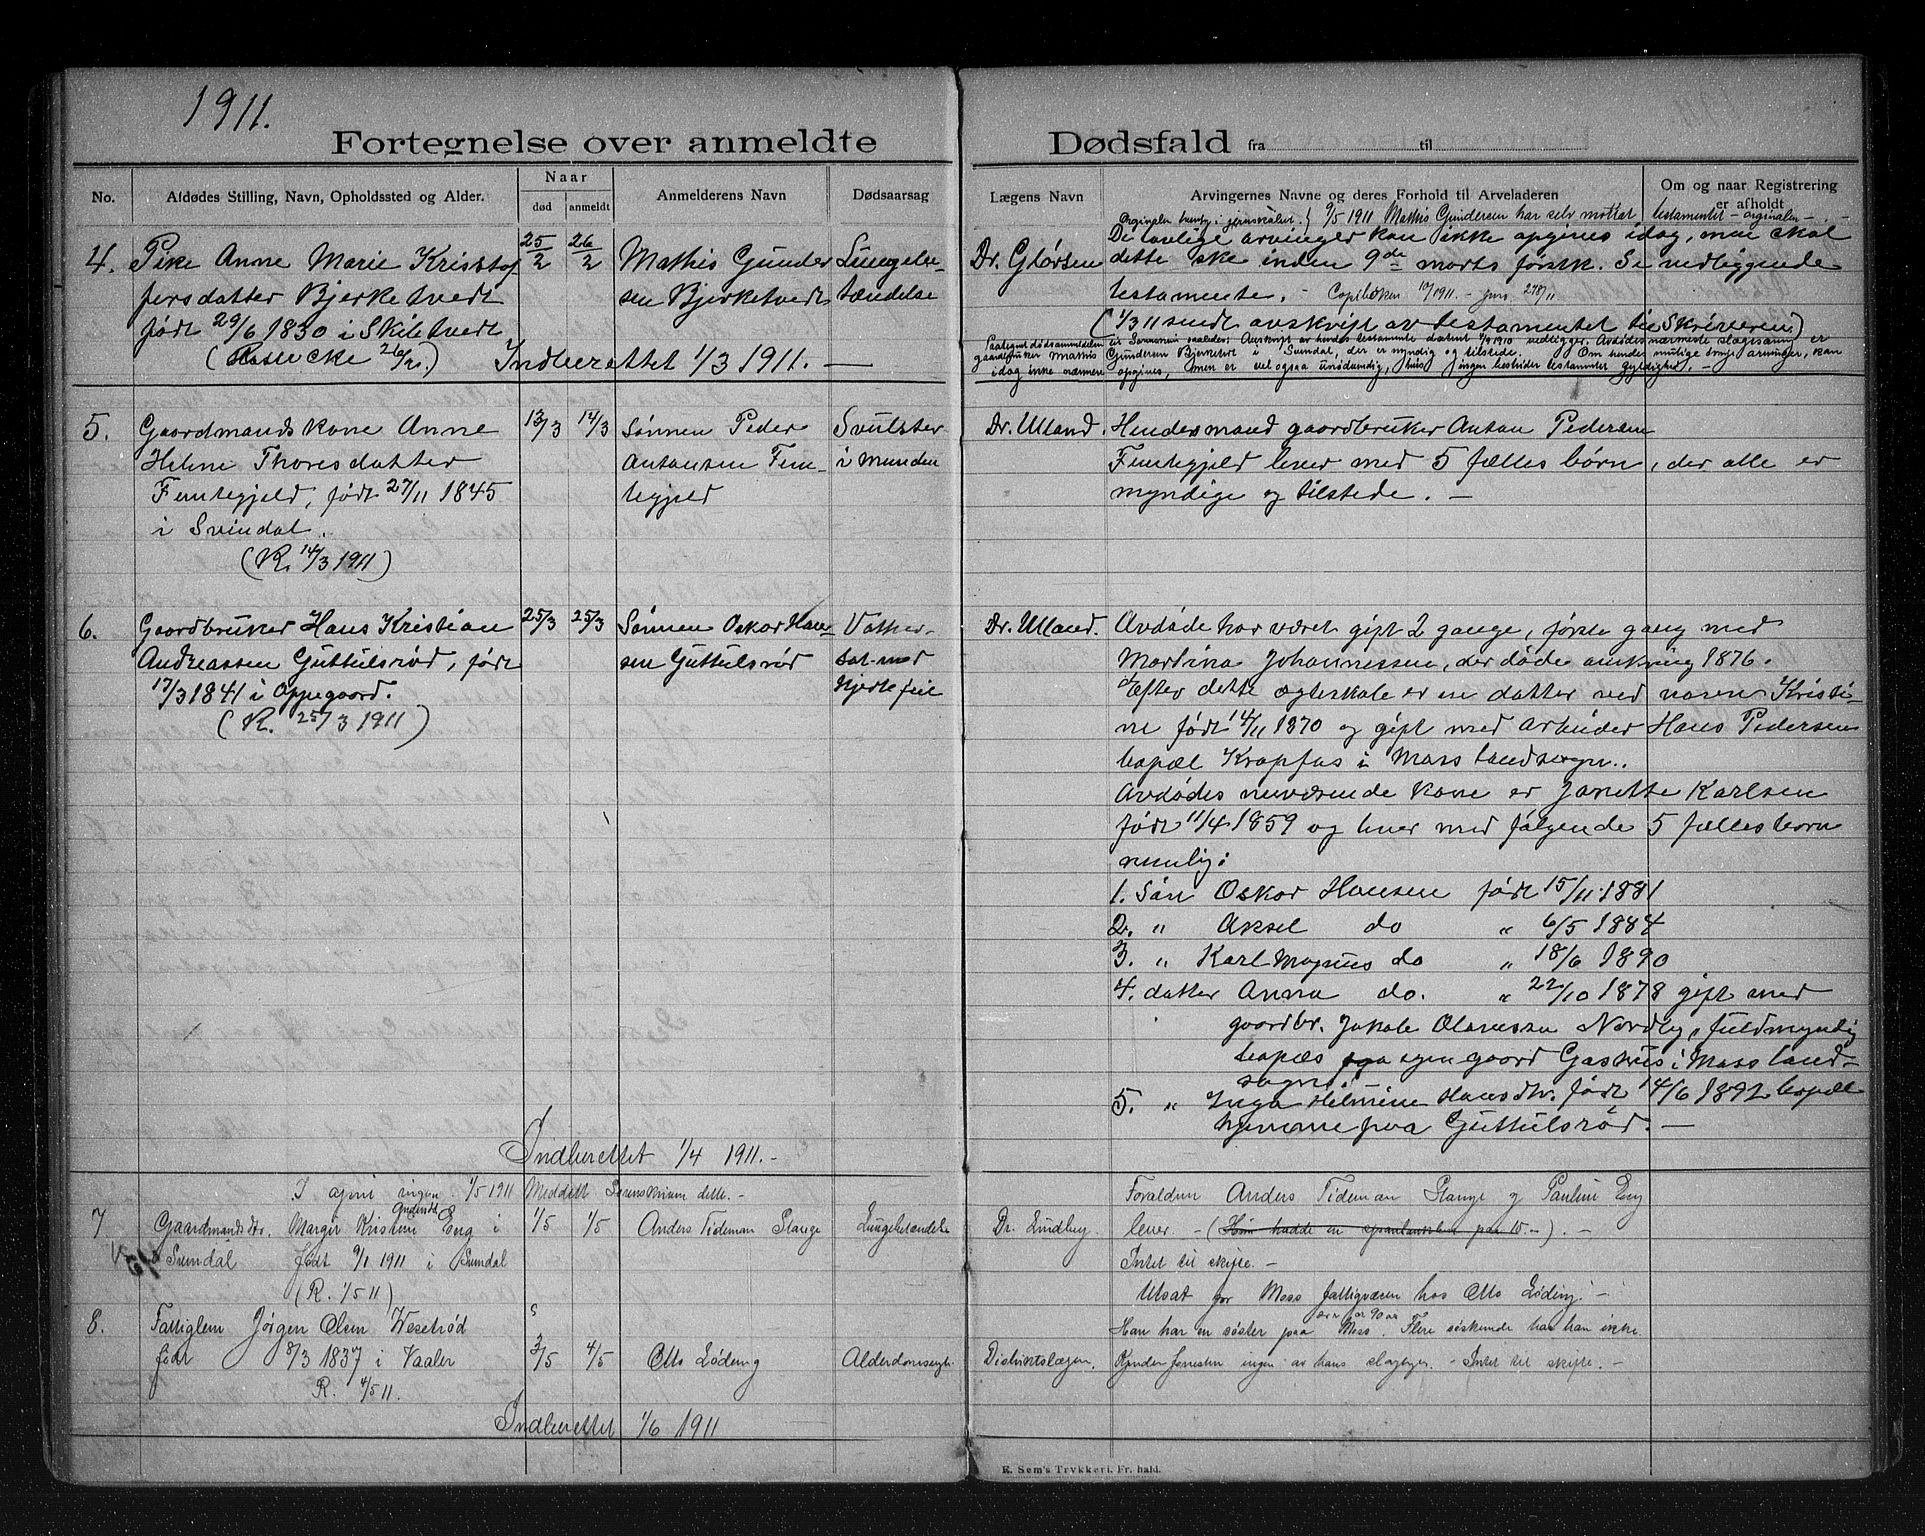 1911.
Fortegnelse over anmeldte Dødsfald fra til
No.
Afdødes Stilling, Navn, Opholdssted og Alder.
Naar
død anmeldt
Anmelderens Navn
Dødsaarsag
Lægens Navn
Arvingernes Navne og deres Forhold til Arveladeren
Om og naar Registrering
er afholdt
4. Pike Anne Marie Kristof
fersdatter Bjerketvedt
født 29/6 1830 i Skibtvedt
25/2 26/2
Mathis Gunder
sen Bjerketvedt
Lungebe-
tændelse
Indberettet 1/3 1911. —
Dr. Glørsen
9/5 1911 Mathis Gundersen har selv mottat testamentet - orginalen -
De øvrige arvinger kan ikke opgives idag, men skal
dette ske inden 9de marts førstk. Se vedliggende
testamente. - Copiboken 10/1911 -
(1/3 11 sendt avskrift av testamentet til Skriveren)
gaardbruker Mathis Gundersen Bjerketvet i Svindal, der er myndig og tilstede. Om hendes mulige øvrige arvinger, kan
idag ikke nærmere opgives, men er vel ogsaa unødvendig, hvis ingen bestrider testamentets gyldighed. -
5. Gaardmandskone Anne
Helene Thoresdatter
Femtegjeld, født 27/11 1845
i Svindal.
(R. 14/3 1911)
13/3 14/3
Sønnen Peder
Antonsen Fem-
tegjeld
Svulster
i munden
Dr. Uland.
Hendes mand gaardbruker Anton Pedersen
Femtegjeld lever med 5 fælles børn, der alle er
myndige og tilstede. —
6. Gaardbruker Hans Kristian
Andreassen Guttulsrød, født
17/3 1841 i Oppegaard.
(R. 25/3 1911)
25/3 25/3
Sønnen Oskar Han-
sen Guttulsrød
Vatter-
sot med
hjertefeil
Dr. Uland.
Avdøde har været gift 2 gange, første gang med
Martina Johannessen, der døde omkring 1876.
Efter dette egteskab er en datter ved navn Kristi-
ne født 14/11 1870 og gift med arbeider Hans Pedersen
bopæl Kropfos i Moss landsogn.
Avdødes nuværende kone er Janette Karlsen
født 11/4 1859 og lever med følgende 5 fælles børn
nemlig:
1. Søn Oskar Hansen født 15/11 1881
2. " Aksel do " 6/5 1884
3. " Karl Magnus do " 18/6 1890
4. datter Anna do. " 22/10 1878 gift med
gaardbr. Jakob Olaussen Nordby, fuldmyndig
bopæl paa egen gaard Gashus i Moss land-
sogn. -
5. " Inga Helmine Hansdtr. født 14/6 1892 bopæl
hjemme paa Guttulsrød. —
Indberettet 1/4 1911. -
I april ingen. 1/5 1911 Meddelt Sorenskriveren dette. -
7 Gaardmandsdtr. Margit Kristine Andersdt Eng i
Svindal født 9/1 1911 i Svindal
(R. 1/5 11)
1/5 1/5
Anders Tideman Stange
Lungebetændelse
Dr. Lindboy
Foreldrene Anders Tideman Stange og Pauline Eng
lever - (Hun hadde en sparebankbok paa 10. -). -
Intet til skifte. -
8. Fattiglem Jørgen Olsen Wesetrød
født 8/3 1837 i Vaaler
R. 4/5 11.
2/5 4/5
Otto Løding
Alderdomssvgh.
Distriktslægen.
Utsat for Moss fattigvæsen hos Otto Løding. -
Han har en søster paa Moss. Flere søskende har han ikke.
Kjender forresten ingen av hans slegtninger. - Intet til skifte. -
Indberettet 1/6 1911
E. Sem's Trykkeri, Fr. hald.